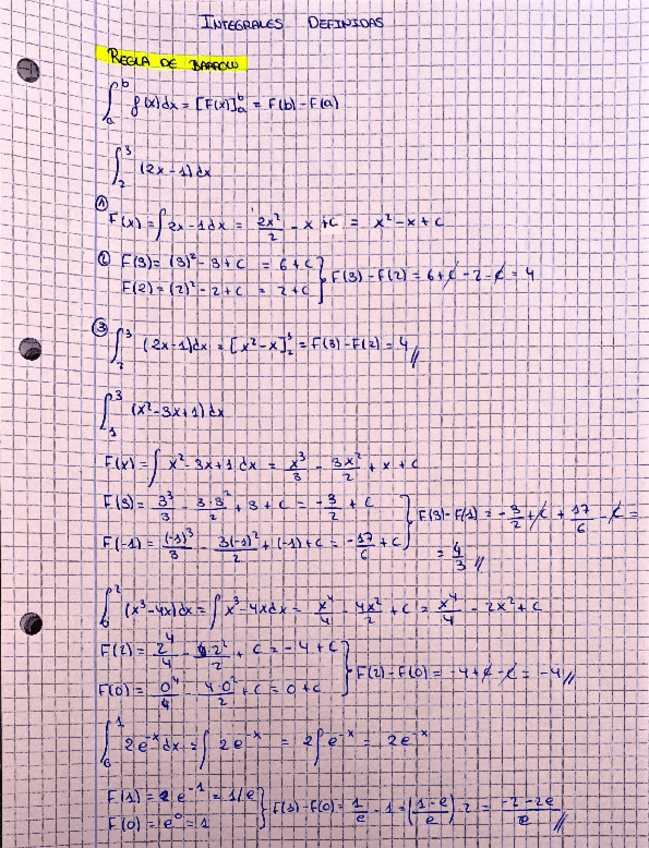 INTEGRALES DEFINIDAS
REGLA DE BARROW
∫_a^b f(x)dx = [F(x)]_a^b = F(b) - F(a)
∫_2^3 (2x-1)dx
① F(x) = ∫2x-1dx = 2x²/2 - x + c = x² - x + c
② F(3) = (3)² - 3 + c = 6 + c } F(3) - F(2) = 6 + c - 2 - c = 4
F(2) = (2)² - 2 + c = 2 + c
③ ∫_2^3 (2x-1)dx = [x² - x]_2^3 = F(3) - F(2) = 4 //
∫_1^3 (x²-3x+1)dx
F(x) = ∫ x²-3x+1 dx = x³/3 - 3x²/2 + x + c
F(3) = 3³/3 - 3·3²/2 + 3 + c = -3/2 + c } F(3) - F(1) = -3/2 + c + 17/6 - c =
F(-1) = (-1)³/3 - 3(-1)²/2 + (-1) + c = -17/6 + c
= 4/3 //
∫_0^2 (x³-4x)dx = ∫x³-4xdx = x⁴/4 - 4x²/2 + c = x⁴/4 - 2x² + c
F(2) = 2⁴/4 - 4·2²/2 + c = -4 + c } F(2) - F(0) = -4 + c - c = -4 //
F(0) = 0⁴/4 - 4·0²/2 + c = 0 + c
∫_0^1 2e^-x dx = ∫ 2e^-x = 2∫e^-x = 2e^-x
F(1) = e^-1 = 1/e } F(1) - F(0) = 1/e - 1 = (1-e/e)·2 = -2-2e/e //
F(0) = e⁰ = 1